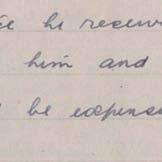 he receiv
him and
be expens